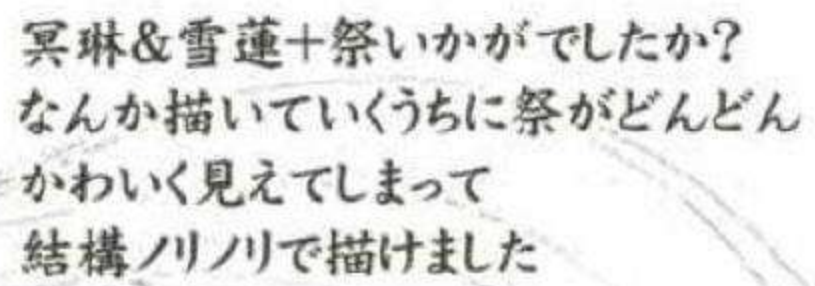 冥琳&雪蓮＋祭いかがでしたか？
なんか描いていくうちに祭がどんどん
かわいく見えてしまって
結構ノリノリで描けました